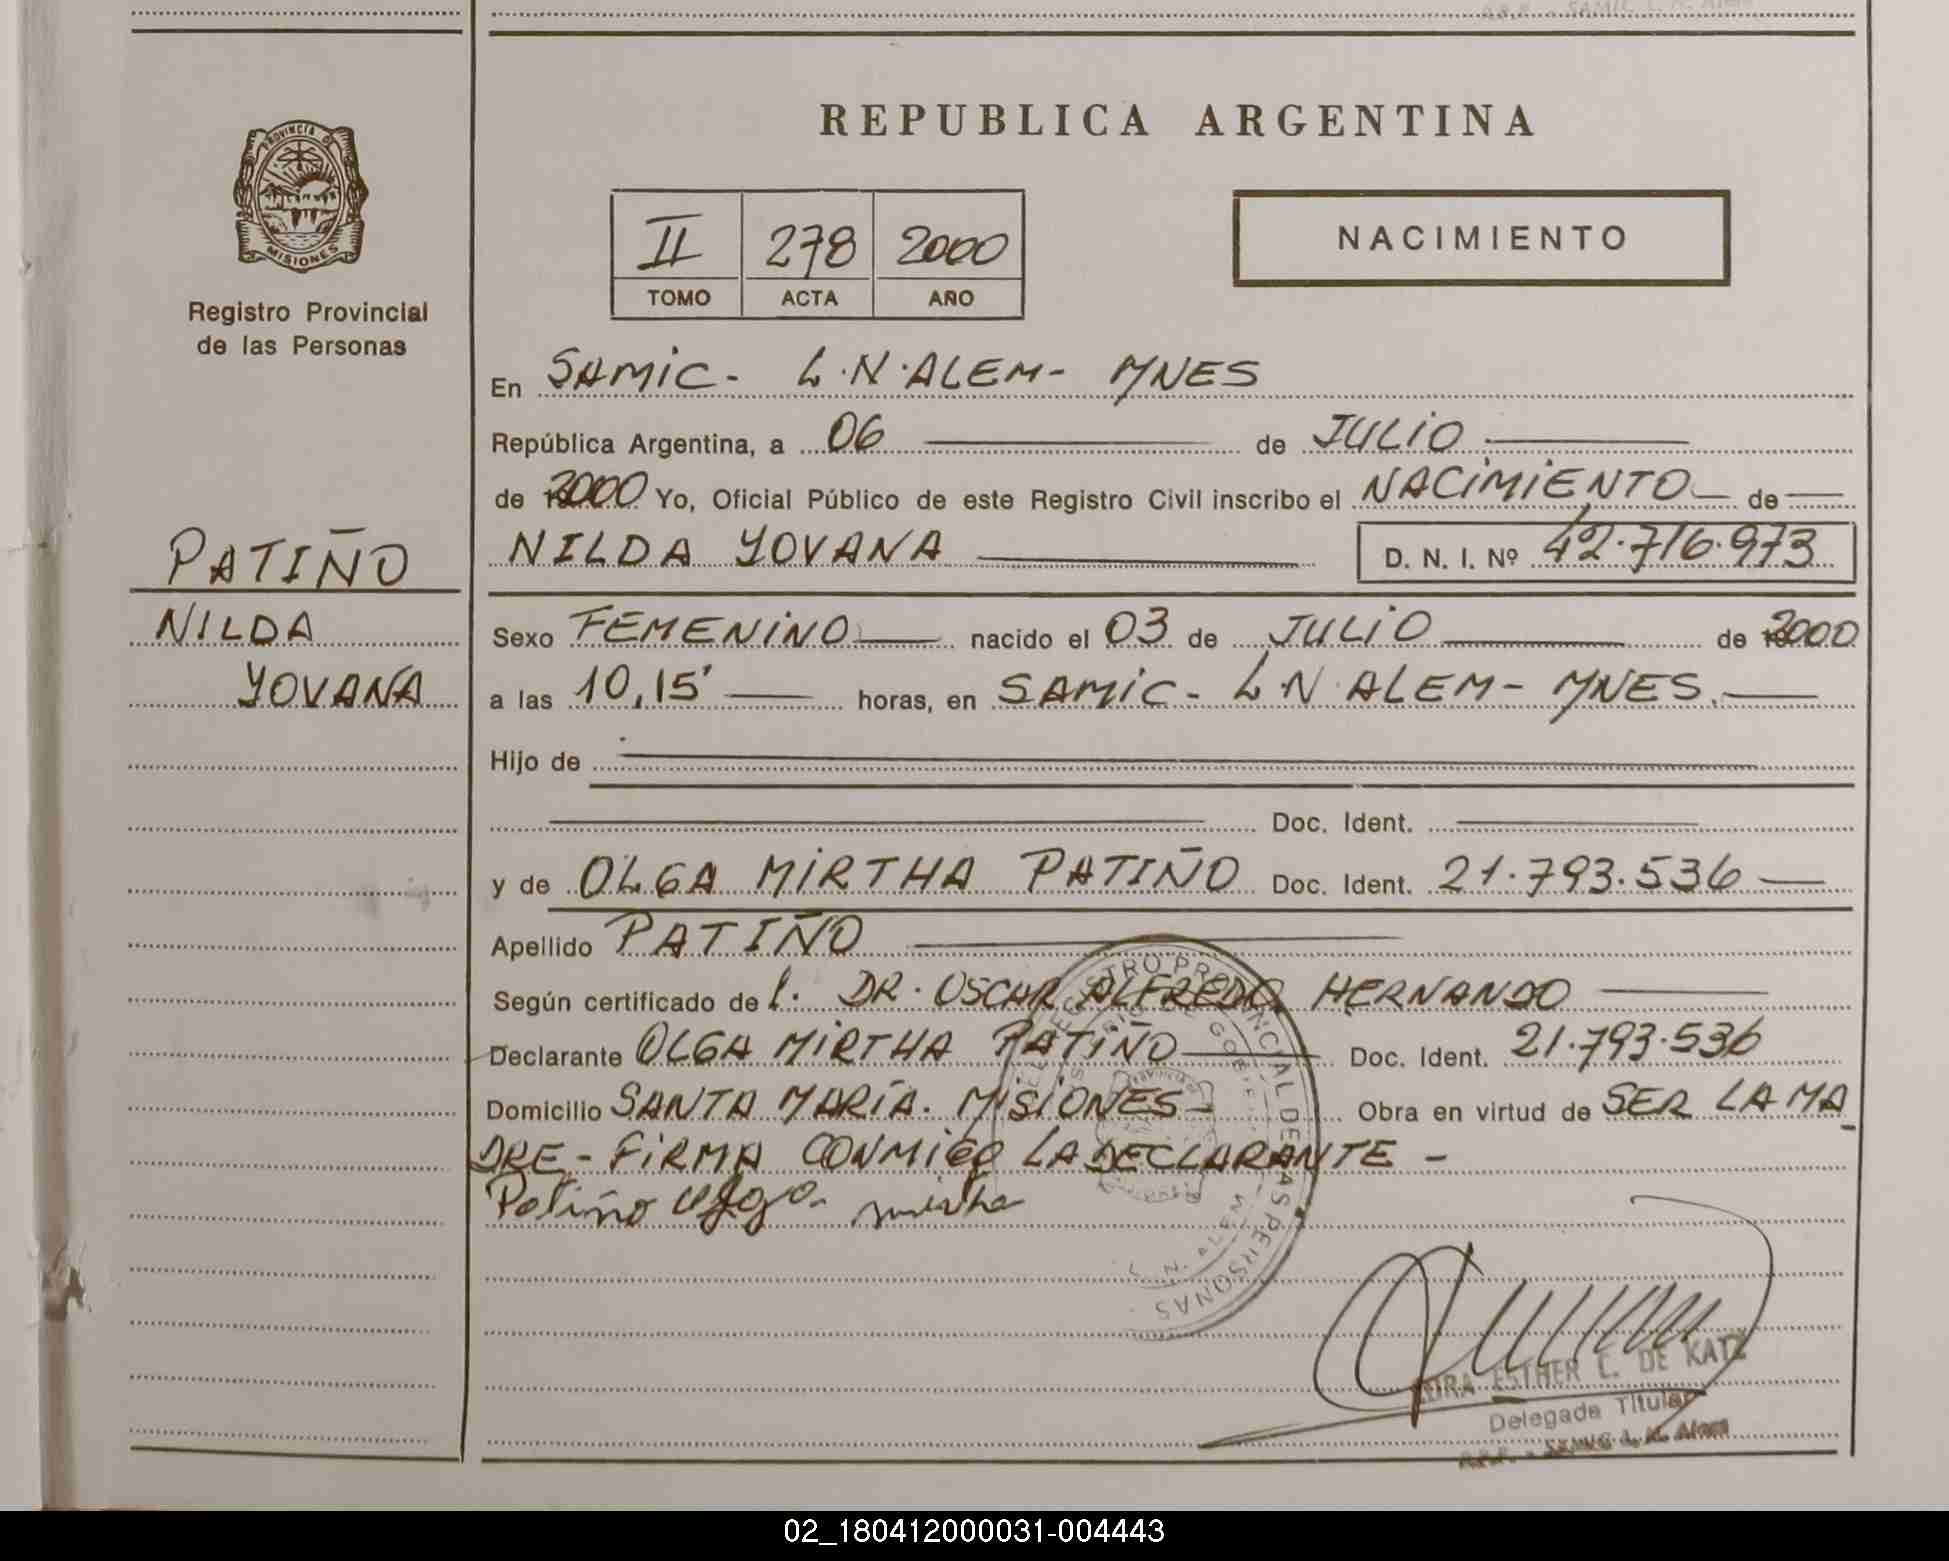 REPUBLICA ARGENTINA
PROVINCIA DE
MISIONES
Registro Provincial
de las Personas
II 278 2000
TOMO ACTA AÑO
NACIMIENTO
En SAMIC- L.N.ALEM- MNES
República Argentina, a 06 de JULIO
de 2000 Yo, Oficial Público de este Registro Civil inscribo el NACIMIENTO de
NILDA YOVANA D. N. I. Nº 42.716.973
PATIÑO
NILDA
YOVANA
Sexo FEMENINO nacido el 03 de JULIO de 2000
a las 10,15' horas, en SAMIC- L.N.ALEM- MNES.
Hijo de
Doc. Ident.
y de OLGA MIRTHA PATIÑO Doc. Ident. 21.793.536
Apellido PATIÑO
Según certificado de l. DR. OSCAR ALFREDO HERNANDO
Declarante OLGA MIRTHA PATIÑO Doc. Ident. 21.793.536
Domicilio SANTA MARÍA. MISIONES- Obra en virtud de SER LA MA
DRE- FIRMA CONMIGO LA DECLARANTE -
Patiño olga mirtha
REGISTRO PROVINCIAL DE LAS PERSONAS
L. N. ALEM
ESTHER C. DE KATZ
Delegada Titular
R.P.P. - SAMIC L. N. Alem
02_180412000031-004443